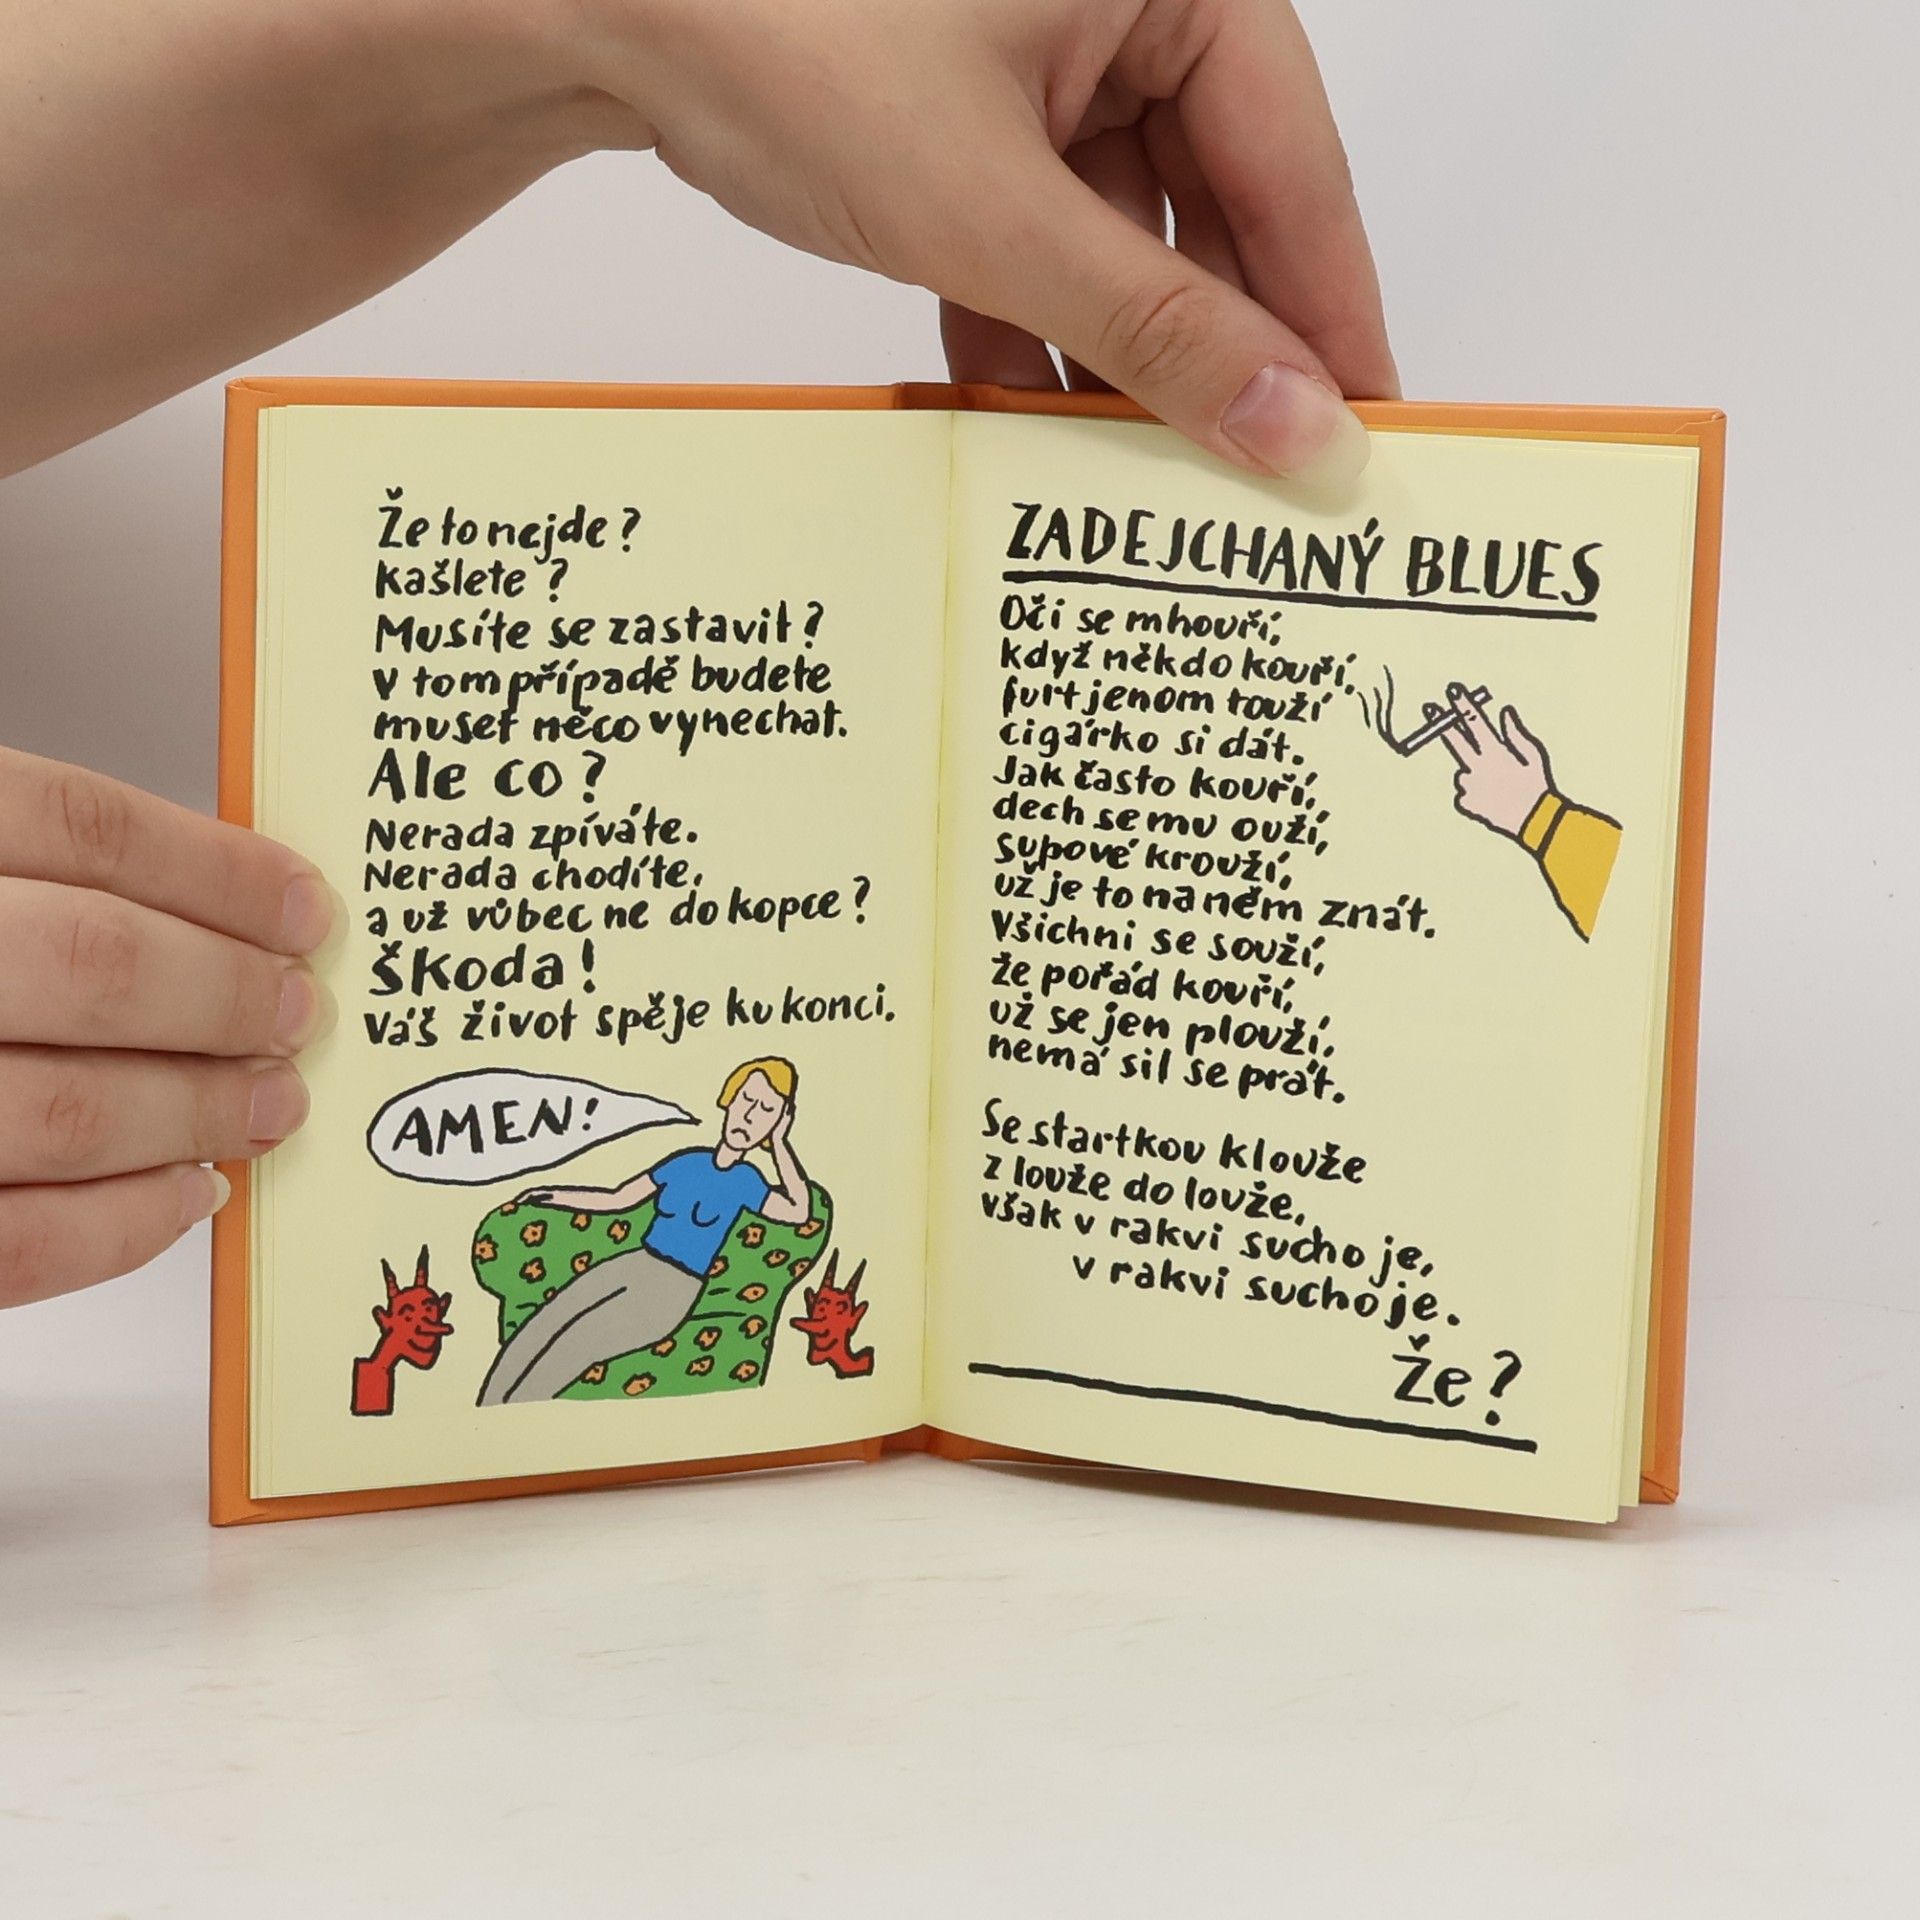 Že to nejde?
Kašlete?
Musíte se zastavit?
V tom případě budete
muset něco vynechat.
Ale co?
Nerada zpíváte.
Nerada chodíte,
a už vůbec ne do kopce?
Škoda!
Váš život spěje ku konci.
AMEN!
ZADEJCHANÝ BLUES
Oči se mhouří,
když někdo kouří,
furt jenom touží
cigárko si dát.
Jak často kouří,
dech se mu ouží,
supové krouží,
už je to na něm znát.
Všichni se souží,
že pořád kouří,
už se jen plouží,
nemá sil se prát.
Se startkou klouže
z louže do louže,
však v rakvi sucho je,
v rakvi sucho je.
Že?